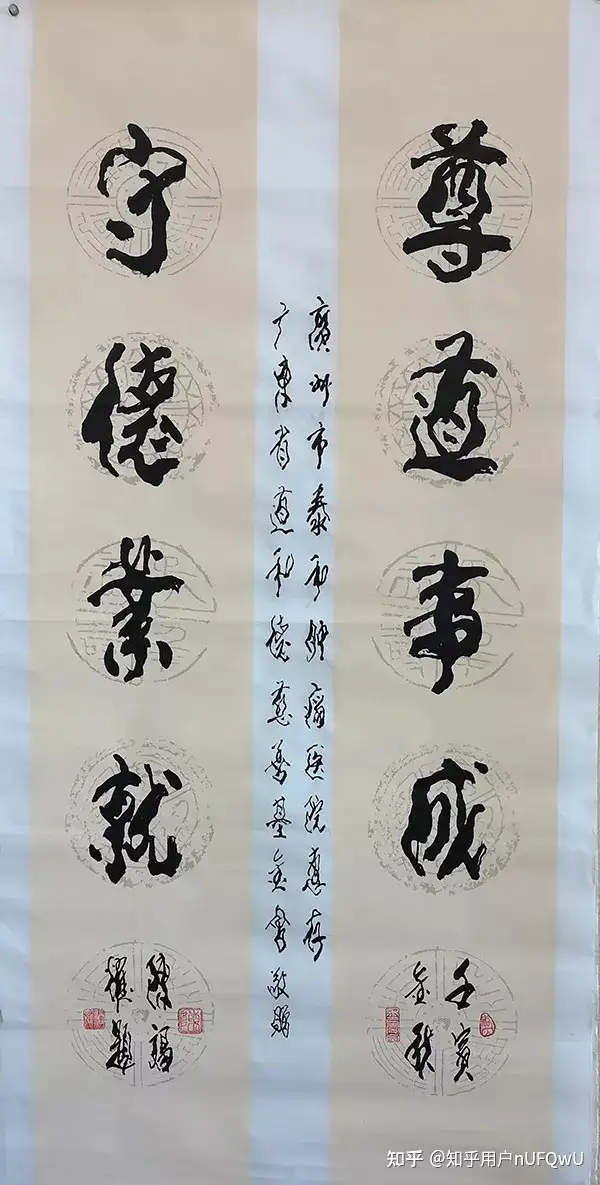 尊道事成
壬寅
金秋
廣州市泰和肿瘤医院惠存
广東省道和德慈善基金會敬贈
守德業就
題
知乎 @知乎用户nUFQwU